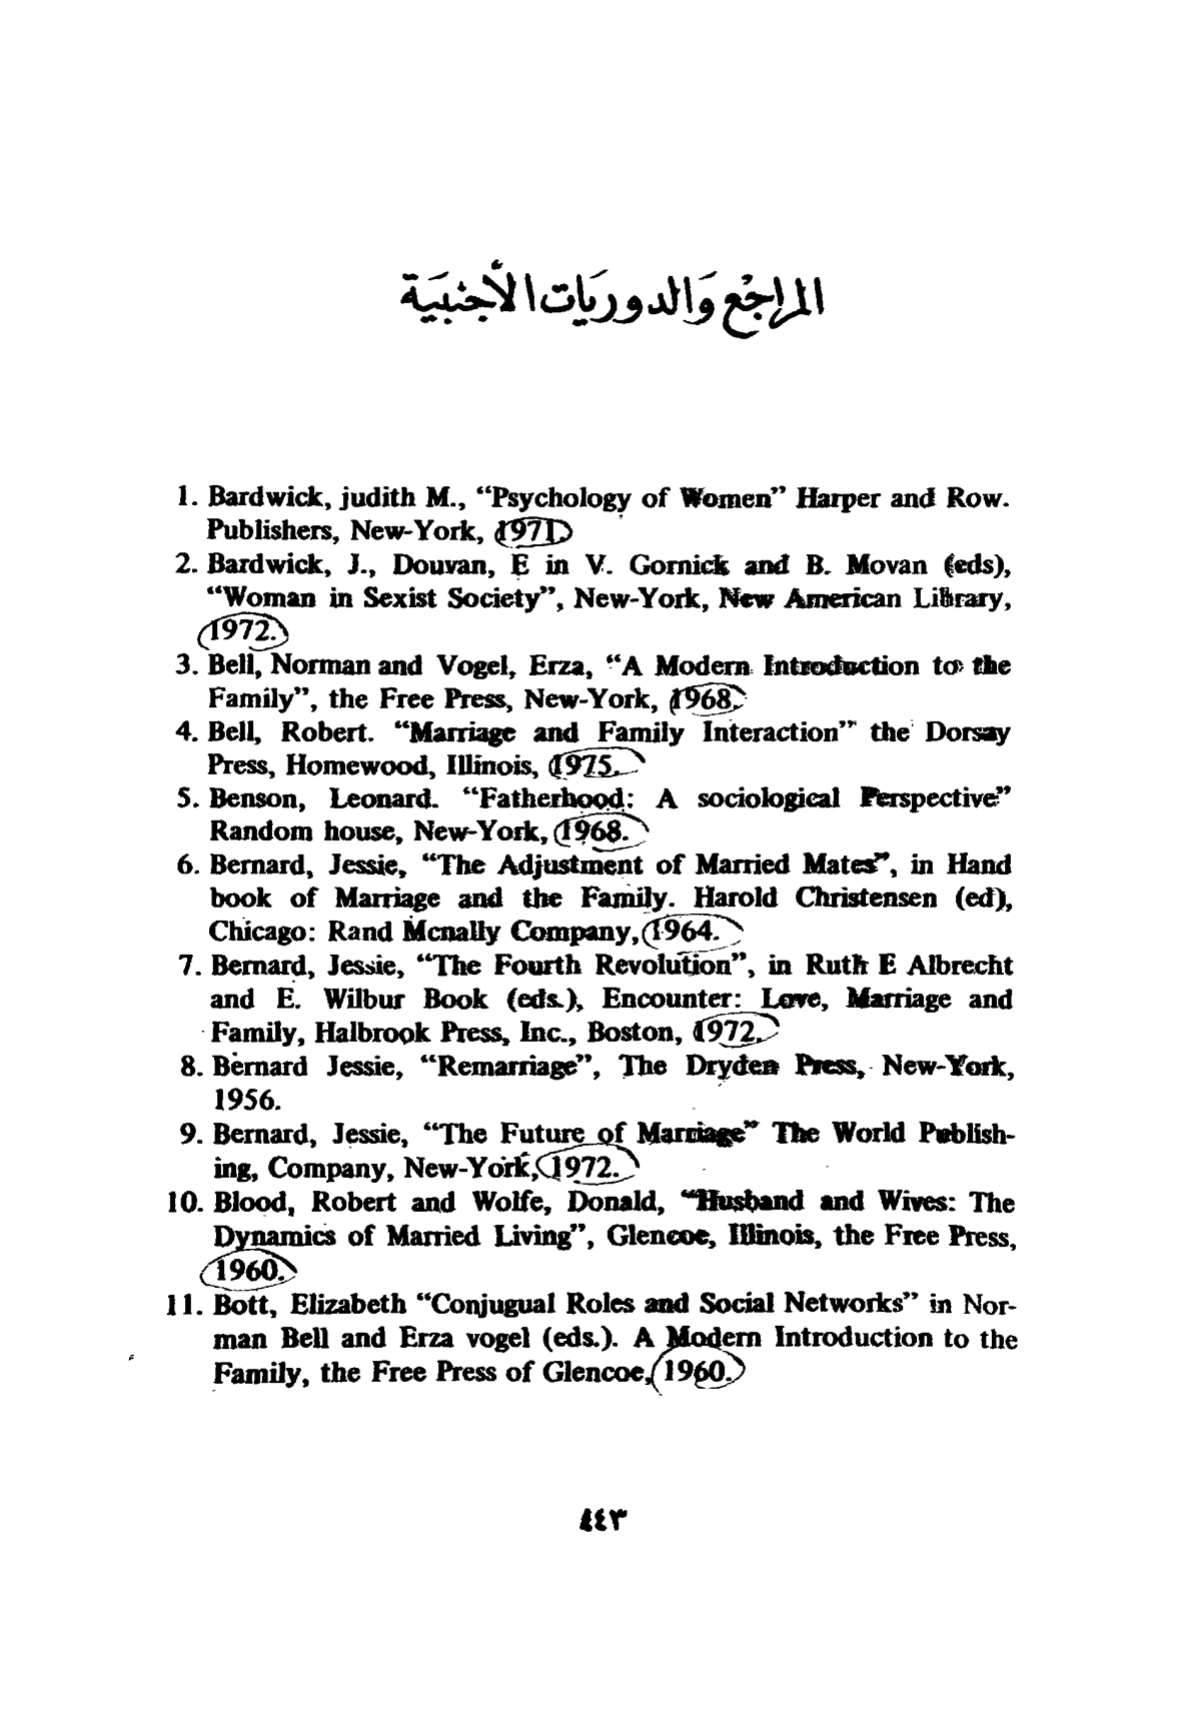 المراجع والدوريات الأجنبية
1. Bardwick, judith M., “Psychology of Women” Harper and Row.
Publishers, New-York, 1971.
2. Bardwick, J., Douvan, E in V. Gornick and B. Movan (eds),
“Woman in Sexist Society”, New-York, New American Library,
1972.
3. Bell, Norman and Vogel, Erza, “A Modern Introduction to the
Family”, the Free Press, New-York, 1968.
4. Bell, Robert. “Marriage and Family Interaction” the Dorsay
Press, Homewood, Illinois, 1975.
5. Benson, Leonard. “Fatherhood: A sociological Perspective”
Random house, New-York, 1968.
6. Bernard, Jessie, “The Adjustment of Married Mates”, in Hand
book of Marriage and the Family. Harold Christensen (ed),
Chicago: Rand Mcnally Company, 1964.
7. Bernard, Jessie, “The Fourth Revolution”, in Ruth E Albrecht
and E. Wilbur Book (eds.), Encounter: Love, Marriage and
Family, Halbrook Press, Inc., Boston, 1972.
8. Bernard Jessie, “Remarriage”, The Dryden Press, New-York,
1956.
9. Bernard, Jessie, “The Future of Marriage” The World Publish-
ing, Company, New-York, 1972.
10. Blood, Robert and Wolfe, Donald, “Husband and Wives: The
Dynamics of Married Living”, Glencoe, Illinois, the Free Press,
1960.
11. Bott, Elizabeth “Conjugual Roles and Social Networks” in Nor-
man Bell and Erza vogel (eds.). A Modern Introduction to the
Family, the Free Press of Glencoe, 1960.
٤٤٣